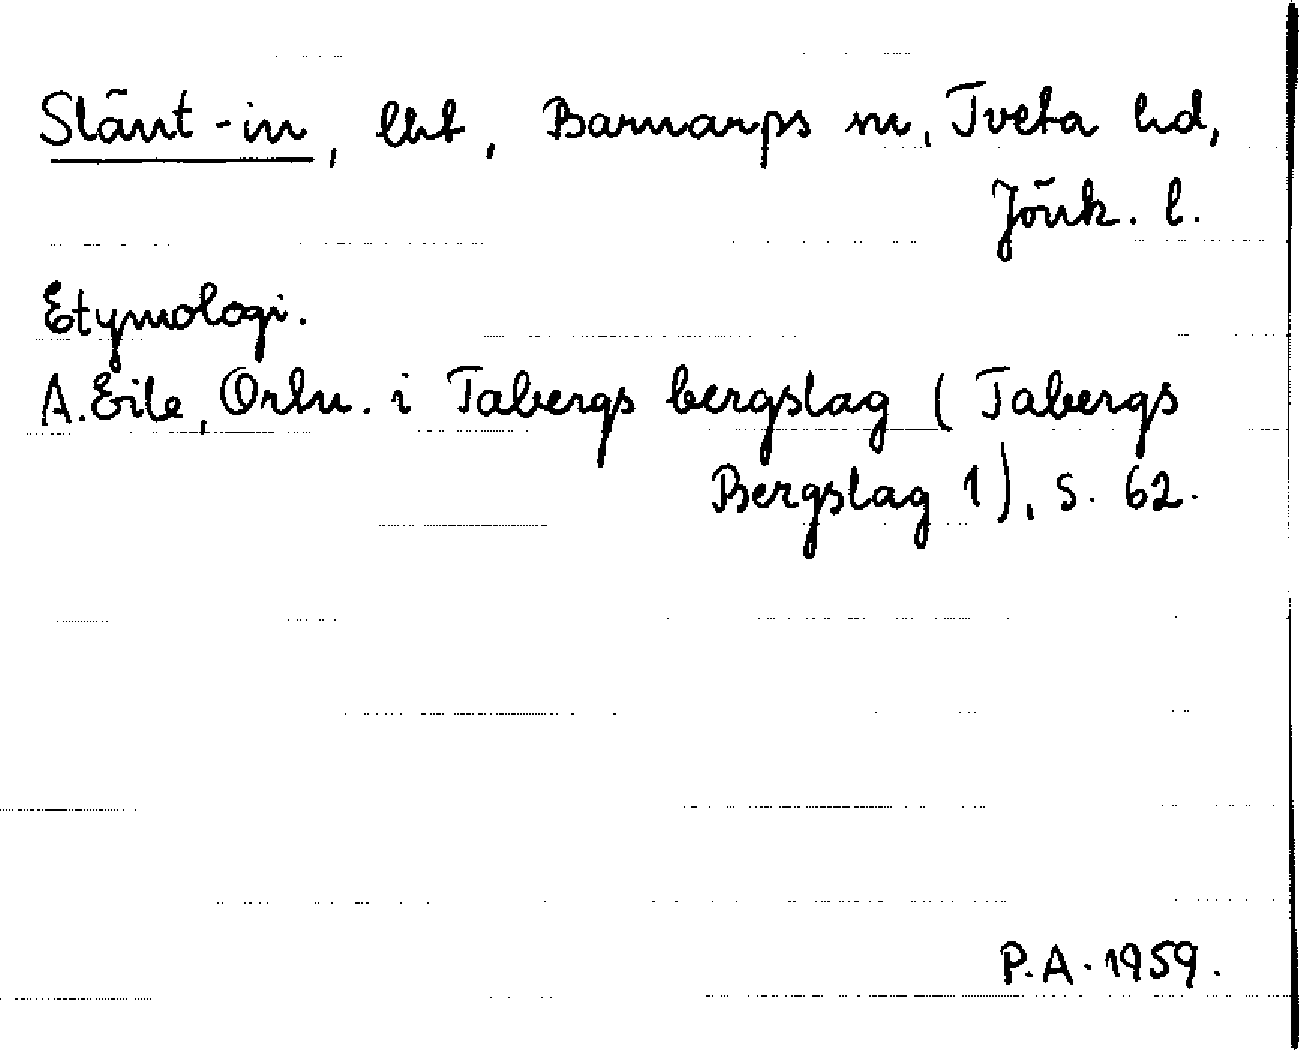 Slänt-in, lht, Barnarps sn, Tveta hd,
Jönk. l.
Etymologi.
A. Eile, Ortn. i Tabergs bergslag (Tabergs
Bergslag 1), s. 62.
P.A. 1959.